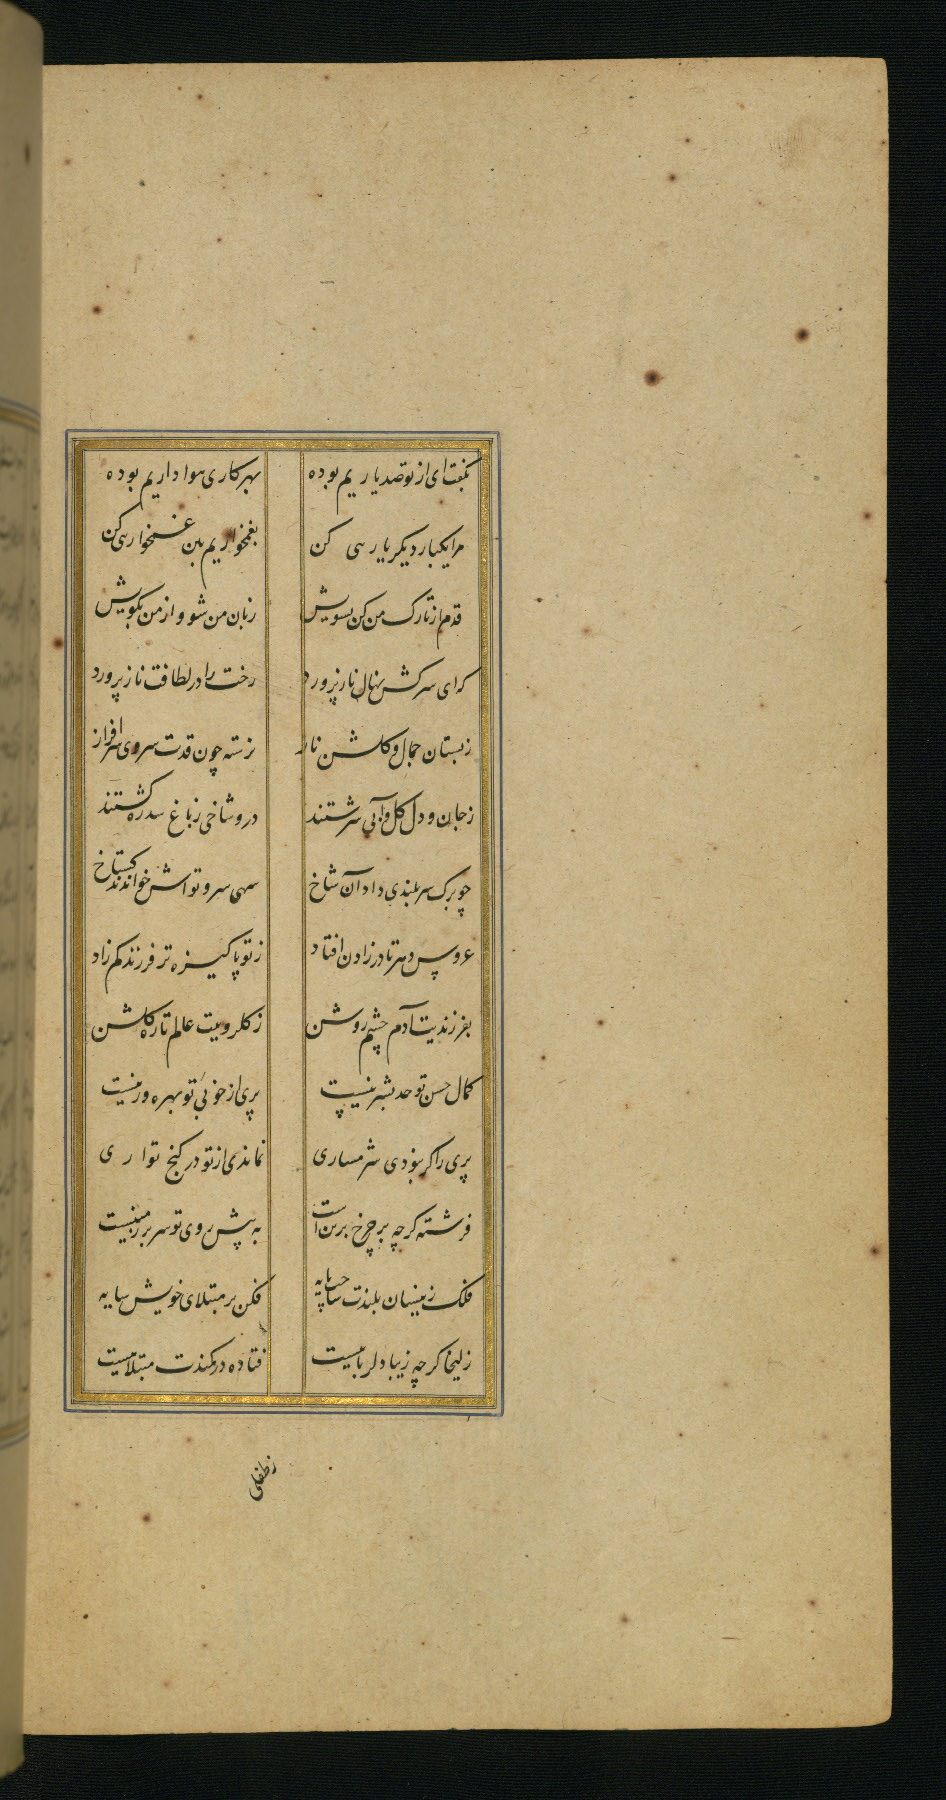 بگفت ای از تو صد یاریم بوده بهر کاری هواداریم بوده
مرا یکبار دیگر یاریی کن بغمخواریم بین غمخواریی کن
قدم از تارک من کن بسویش زبان من شو و از من بگویش
که ای سرکش نهال نازپرورد رخت را در لطافت ناز پرورد
ز بستان جمال و گلشن ناز نرسته چون قدت سروی سرافراز
ز جان و دل گل و آبی سرشتند درو شاخی ز باغ سدره گشتند
چو برگ سربلندی داد آن شاخ سهی سرو تواش خواندند گستاخ
عروس دهر تا در زادن افتاد ز تو پاکیزه تر فرزند کم زاد
بفرزندیت آدم چشم روشن ز گلرویت عالم تازه گلشن
کمال حسن تو حد بشر نیست پری از خوبیٔ تو بهره ور نیست
پری را گر نبودی شرمساری نماندی از تو در کنج تواری
فرشته گرچه بر چرخ برین است به پیش روی تو سر بر زمینست
فلک زینسان بلندت ساخت پایه فکن بر مبتلای خویش سایه
زلیخا گرچه زیبا دلرباییست فتاده در کمندت مبتلاییست
ز طفلی